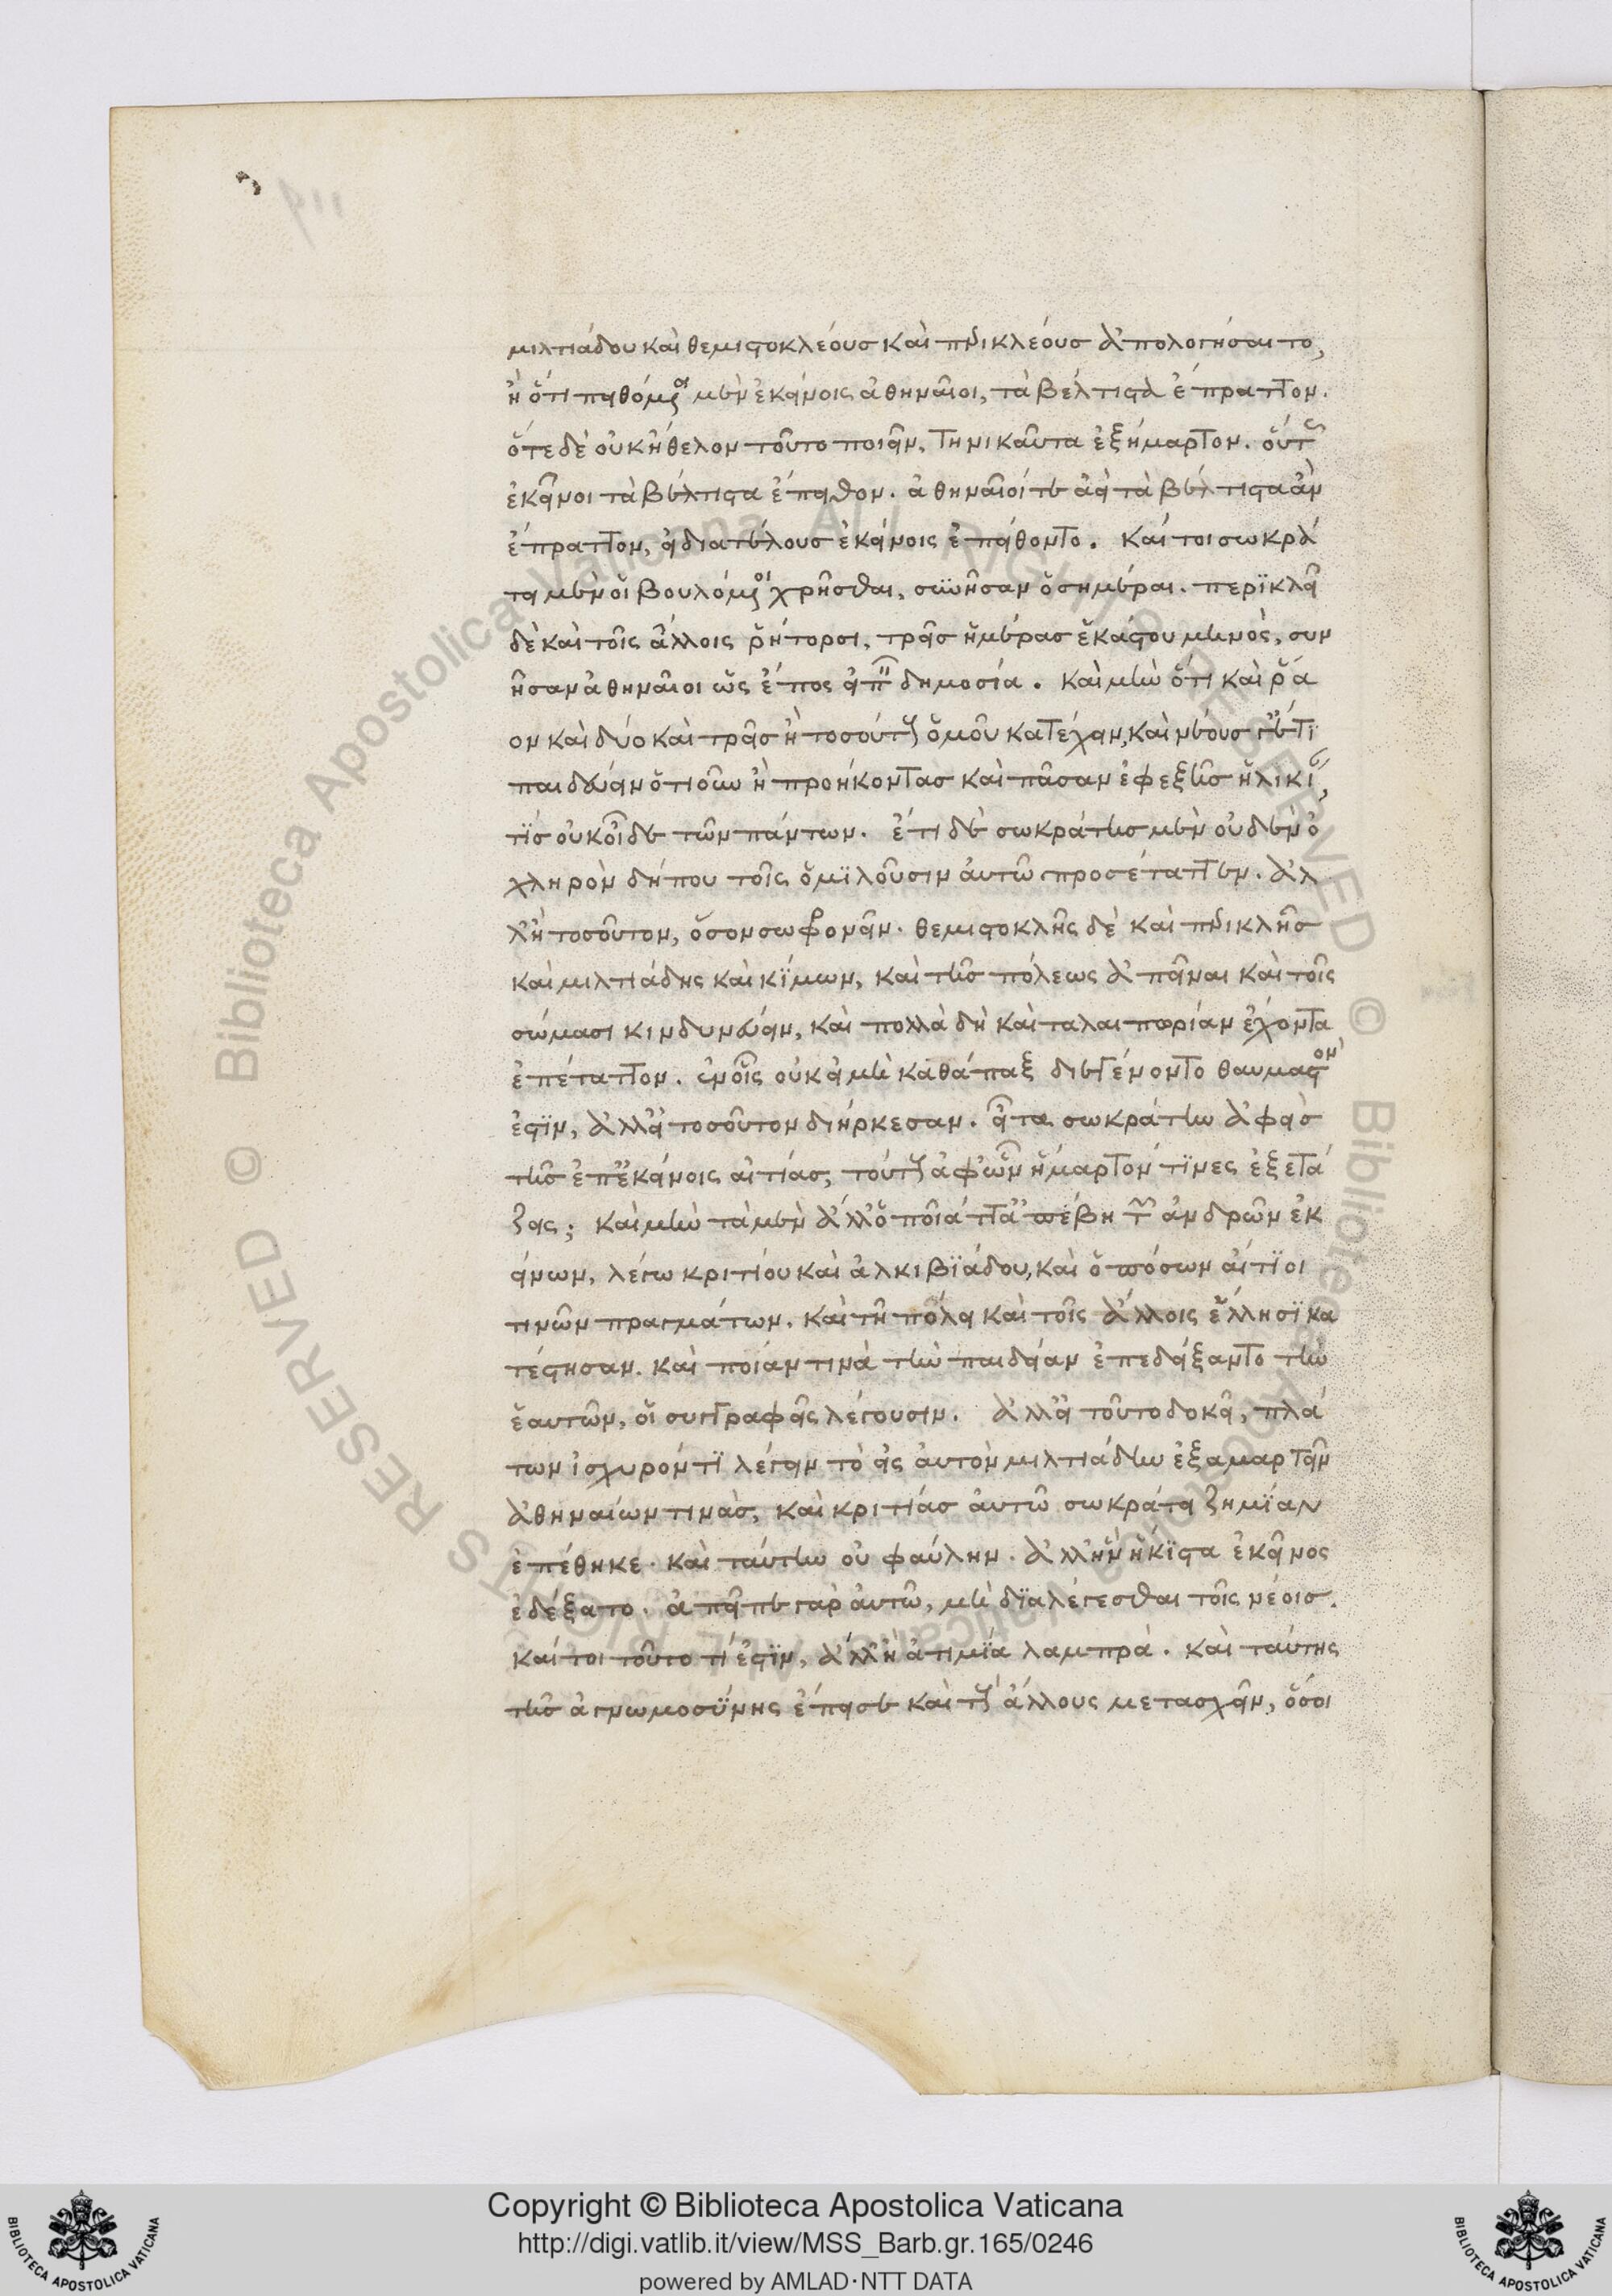 μιλτιάδου καὶ θεμιστοκλέους καὶ περικλέους ἀπολογήσαιτο,
ἢ ὅτι πειθόμενοι μὲν ἐκείνοις ἀθηναῖοι, τὰ βέλτιστα ἔπραττον.
ὅτε δὲ οὐκ ἤθελον τοῦτο ποιεῖν, τηνικαῦτα ἐξήμαρτον. οὕτως
ἐκεῖνοι τὰ βέλτιστα ἔπειθον. ἀθηναῖοί τε ἀεὶ τὰ βέλτιστα ἂν
ἔπραττον, εἰ διατέλους ἐκείνοις ἐπείθοντο. καίτοι σωκρά
τει μὲν οἱ βουλόμενοι χρῆσθαι, συνῆσαν ὁσημέραι. περϊκλεῖ
δὲ καὶ τοῖς ἄλλοις ῥήτορσι, τρεῖς ἡμέρας ἑκάστου μηνὸς, συν
ῆσαν ἀθηναῖοι ὡς ἔπος εἰπεῖν δημοσία. καὶ μὴν ὅτι καὶ ῥᾶ
ον καὶ δύο καὶ τρεῖς ἢ τοσούτους ὁμοῦ κατέχειν, καὶ νέους ἔτι
παιδεύειν ὁτιοῦν ἢ προήκοντας καὶ πᾶσαν ἐφεξῆς ἡλικίαν,
τΐς οὐκ οἶδε τῶν πάντων. ἔτι δὲ σωκράτης μὲν οὐδὲν ὀ
χληρὸν δήπου τοῖς ὁμϊλοῦσιν αὐτῶ προσέταττεν. ἀλ
λ' ἢ τοσοῦτον, ὅσον σωφρονεῖν. θεμιστοκλῆς δὲ καὶ περικλῆς
καὶ μιλτιάδης καὶ κΐμων, καὶ τῆς πόλεως ἀπεῖναι καὶ τοῖς
σώμασι κινδυνεύειν, καὶ πολλὰ δὴ καὶ ταλαιπωρίαν ἔχοντα
ἐπέταττον. ἐν οἷς οὐκ εἰ μὴ καθάπαξ διεγένοντο θαυμαστὸν
ἐστϊν, ἀλλ' εἰ τοσοῦτον διήρκεσαν. εἶτα σωκράτην ἀφεὶς
τῆς ἐπ' ἐκείνοις αἰτίας, τούτους ἀφ' ὧν ἥμαρτόν τϊνες ἐξετά
ζεις; καὶ μὴν τὰ μὲν ἀλλ' ὁποῖά ττα ἀπέβη τῶν ἀνδρῶν ἐκ
είνων, λέγω κριτίου καὶ ἀλκιβϊάδου, καὶ ὁπόσων αἴτϊοι
τινῶν πραγμάτων. καὶ τῆ πόλει καὶ τοῖς ἄλλοις ἕλλησϊ κα
τέστησαν. καὶ ποίαν τινὰ τὴν παιδείαν ἐπεδείξαντο τὴν
ἑαυτῶν, οἱ συγγραφεῖς λέγουσιν. ἀλλ' εἰ τοῦτο δοκεῖ, πλά
των ἰσχυρόν τϊ λέγειν τὸ εἰς αὐτὸν μιλτιάδην ἐξαμαρτεῖν
ἀθηναίων τινὰς, καὶ κριτίας αὐτῶ σωκράτει ζημΐαν
ἐπέθηκε. καὶ ταύτην οὐ φαύλην. ἀλλ' ἣν ἥκϊστα ἐκεῖνος
ἐδέξατο. ἀπεῖπε γὰρ αὐτῶ, μὴ δϊαλέγεσθαι τοῖς νέοις.
καίτοι τοῦτο τί ἐστϊν, ἀλλ' ἢ ἀτιμΐα λαμπρά. καὶ ταύτης
τῆς ἀγνωμοσΰνης ἔπεισε καὶ τοὺς ἄλλους μετασχεῖν, ὅσοι
Copyright © Biblioteca Apostolica Vaticana
http://digi.vatlib.it/view/MSS_Barb.gr.165/0246
powered by AMLAD·NTT DATA